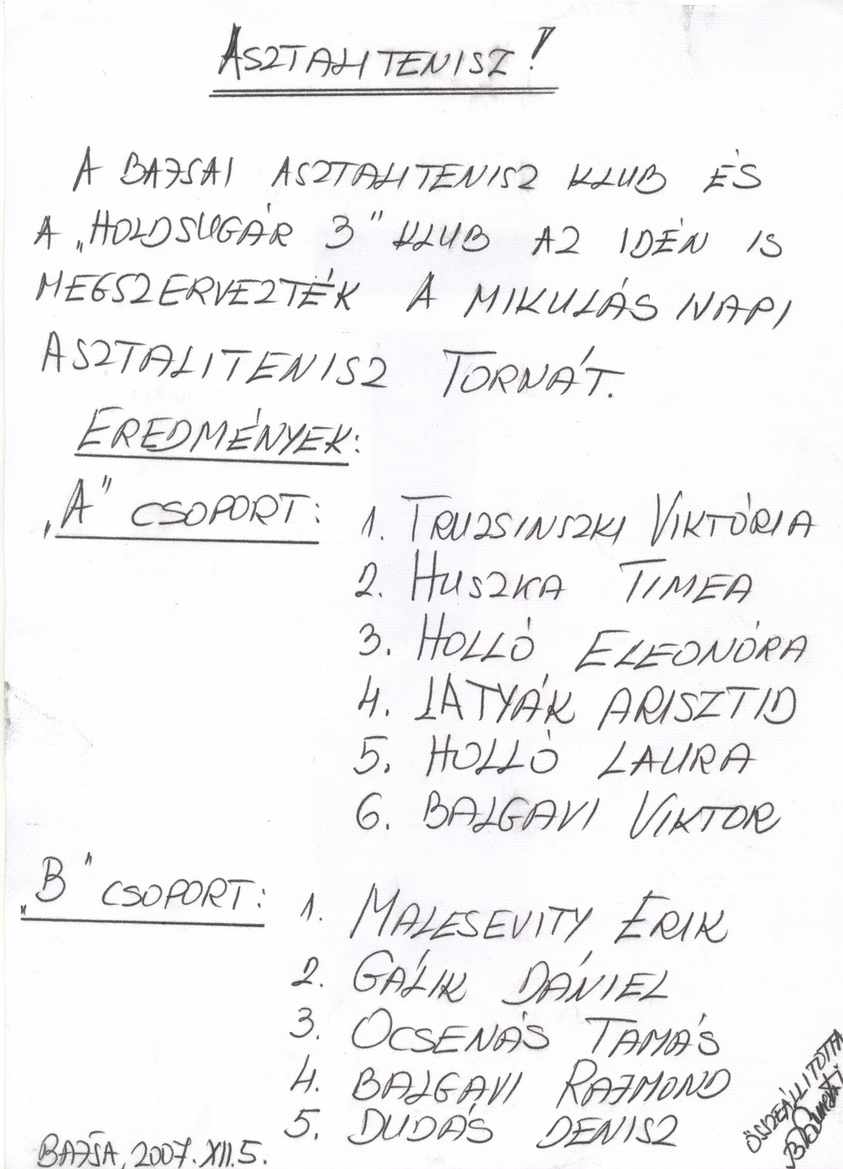 ASZTALITENISZ!
A BAJSAI ASZTALITENISZ KLUB ÉS
A „HOLDSUGÁR 3" KLUB AZ IDÉN IS
MEGSZERVEZTÉK A MIKULÁS NAPI
ASZTALITENISZ TORNÁT.
EREDMÉNYEK:
„A" CSOPORT: 1. TRUZSINSZKI VIKTÓRIA
2. HUSZKA TIMEA
3. HOLLÓ ELEONÓRA
4. LATYÁK ARISZTID
5. HOLLÓ LAURA
6. BALGAVI VIKTOR
„B" CSOPORT: 1. MALESEVITY ERIK
2. GÁLIK DÁNIEL
3. OCSENÁS TAMÁS
4. BALGAVI RAJMOND
5. DUDÁS DENISZ
BAJSA, 2007. XII. 5.
ÖSSZEÁLLÍTOTTA